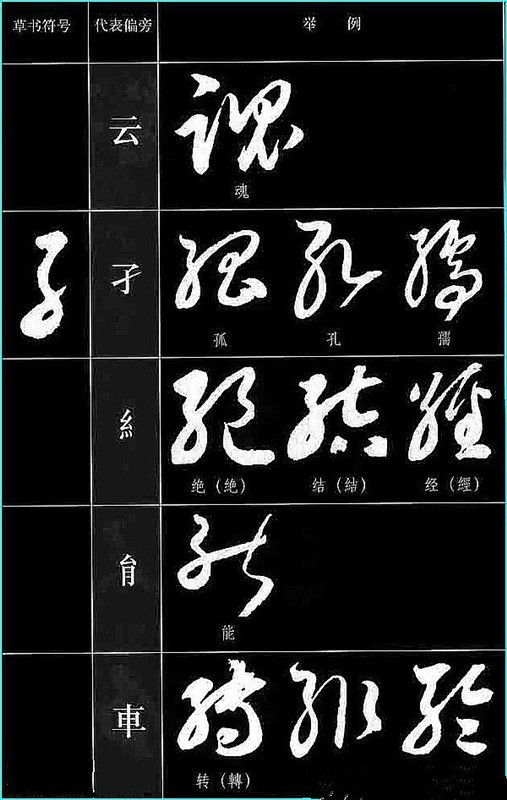 草书符号 代表偏旁 举例
云 魂
孑 孤 孔 孺
糹 绝（絶） 结（結） 经（經）
能
車 转（轉）